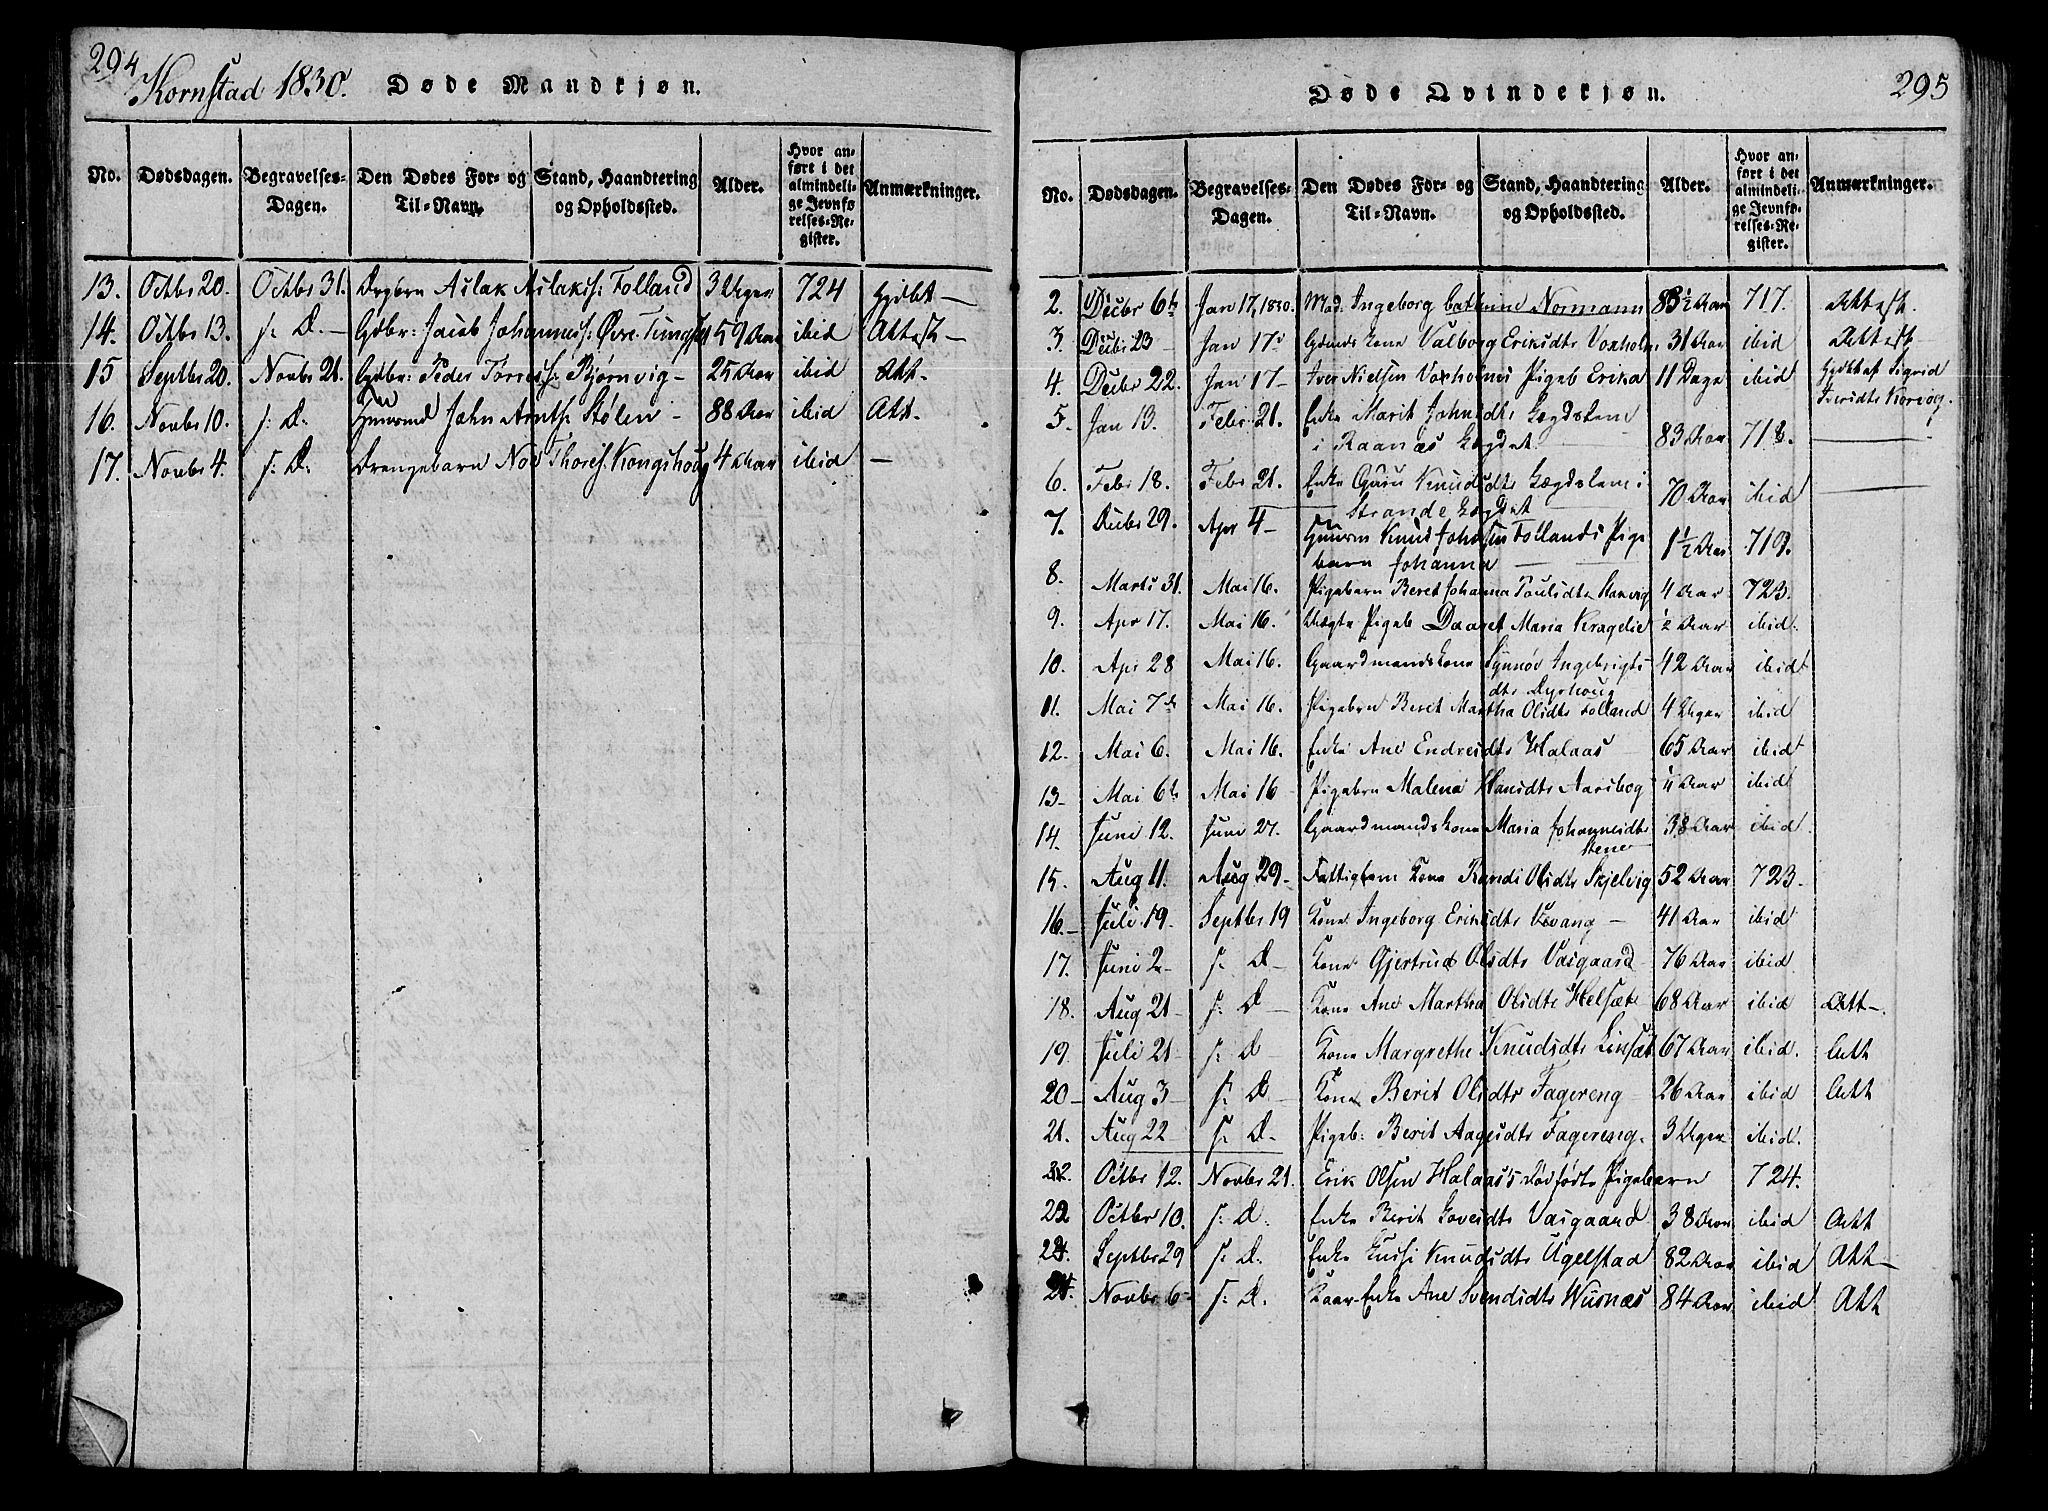 294
Kornstad 1830. Døde Mandkjøn.
No. Dødsdagen. Begravelses-Dagen. Den Dødes For- og Til-Navn. Stand, Haandtering og Opholdssted. Alder. Hvor anført i det almindelige Jevnførelses-Register. Anmærkninger.
13. Octbr 20. Octbr 31. Drgbrn Aslak Aslaks: Folland 3 Uger 724
14. Octbr 13. s: D. Gdbr: Jacob Johanness: Øvre 59 Aar ibid Attest
15 Septbr 20. Novbr 21. Gdbr: Peder Torress: Bjørnvig 25 Aar ibid Att.
16. Novbr 10. s: D. Huusmd John Arnts: Stølen 88 Aar ibid Att.
17. Novbr 4. s: D. Drengebarn Thores: Kongshoug 4 Aar ibid —
295
Døde Qvindekjøn.
No. Dødsdagen. Begravelses-Dagen. Den Dødes For- og Til-Navn. Stand, Haandtering og Opholdssted. Alder. Hvor anført i det almindelige Jevnførelses-Register. Anmærkninger.
2. Decbr 6te Jan 17, 1830. Mad. Ingeborg Cathrine Normann 83½ Aar 717. Attest.
3. Decbr 23 Jan 17 Kone Valborg Eriksdtr Voxholm 31 Aar ibid Attest
4. Decbr 22. Jan 17 Iver Nielsen Voxholmes Pigeb Erika 11 Dage ibid Sigrid
5. Jan 13. Febr 21. Enke Marit Johnsdtr Lægdslem
i Raanæs Lægdet 83 Aar 718.
6. Febr 18. Febr 21. Enke Guru Knudsdtr Lægdslem i
Strande Lægdet 70 Aar ibid
7. Decbr 29. Apr 4 Huusm Knud Johnsen Follands Pige
barn Johanna 1½ Aar 719.
8. Marts 31. Mai 16. Pigebarn Beret Johanna Poulsdtr 4 Aar 723.
9. Apr 17. Mai 16. Uægte Pigeb Daaret Maria Kragelie ½ Aar ibid.
10. Apr 28 Mai 16. Gaardmandskone Synnøv Ingebrigts
dtr Dyrhoug 42 Aar ibid
11. Mai 7de Mai 16. Pigebrn Berit Martha Olsdtr Folland 4 Uger ibid
12. Mai 6. Mai 16. Enke Ane Endresdtr Halaas 65 Aar ibid
13 Mai 6te Mai 16 Pigebrn Malena Hansdtr Aarsbog Aar ibid
14. Juni 12. Juni 27. Gaardmandskone Maria Johannesdtr
Stene 38 Aar ibid.
15. Aug 11. Aug 29 Fattiglem Kone Randi Olsdtr Skjelvig 52 Aar 723.
16. Juli 19. Septbr 19 Kone Ingeborg Eriksdtr 41 Aar ibid
17. Juni 2 s: D Kone Gjertrud Olsdtr Vasgaard 76 Aar ibid.
18. Aug 21 s: D Kone Ane Martha Olsdtr Helsæte 68 Aar ibid Att.
19. Juli 21 s: D Kone Margrethe Knudsdtr Linsæt 67 Aar ibid. Att
20 Aug 3 s: D Kone Berit Olsdtr Fagereng 26 Aar ibid Att
21. Aug 22 s: D. Pigeb: Berit Aagesdtr Fagereng. 3 Uger ibid.
22. Octbr 12. Novbr 21. Erik Olsen Halaas's dødfødte Pigebarn 724.
22 Octbr 10. s: D. Enke Berit Vasgaard 38 Aar ibid Att
24. Septbr 29 s: D. Enke Knudsdtr Ugelstad 82 Aar ibid Att
24. Novbr 6 s: D. Enke Ane Svendsdtr Wusnæs 84 Aar ibid Att